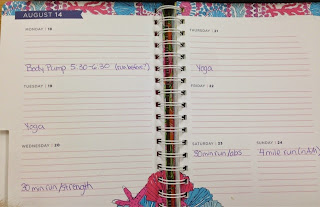 AUGUST 14
MONDAY / 18
Body Pump 5:30-6:30 (run before?)
TUESDAY / 19
Yoga
WEDNESDAY / 20
30 min run / strength
THURSDAY / 21
Yoga
FRIDAY / 22
SATURDAY / 23
30 min run / abs
SUNDAY / 24
4 mile run